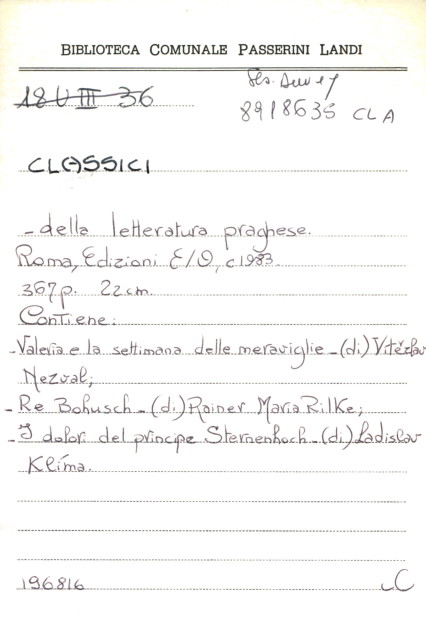 BIBLIOTECA COMUNALE PASSERINI LANDI
18 U III 36
Des. Dewey
8918635 CLA
CLASSICI
- della letteratura praghese.
Roma, Edizioni E/O, c1983.
367p. 22cm.
Contiene:
- Valeria e la settimana delle meraviglie - (di) Vítězslav
Nezval;
- Re Bohusch - (di) Rainer Maria Rilke;
- I dolori del principe Sternenhoch - (di) Ladislav
Klíma.
196816